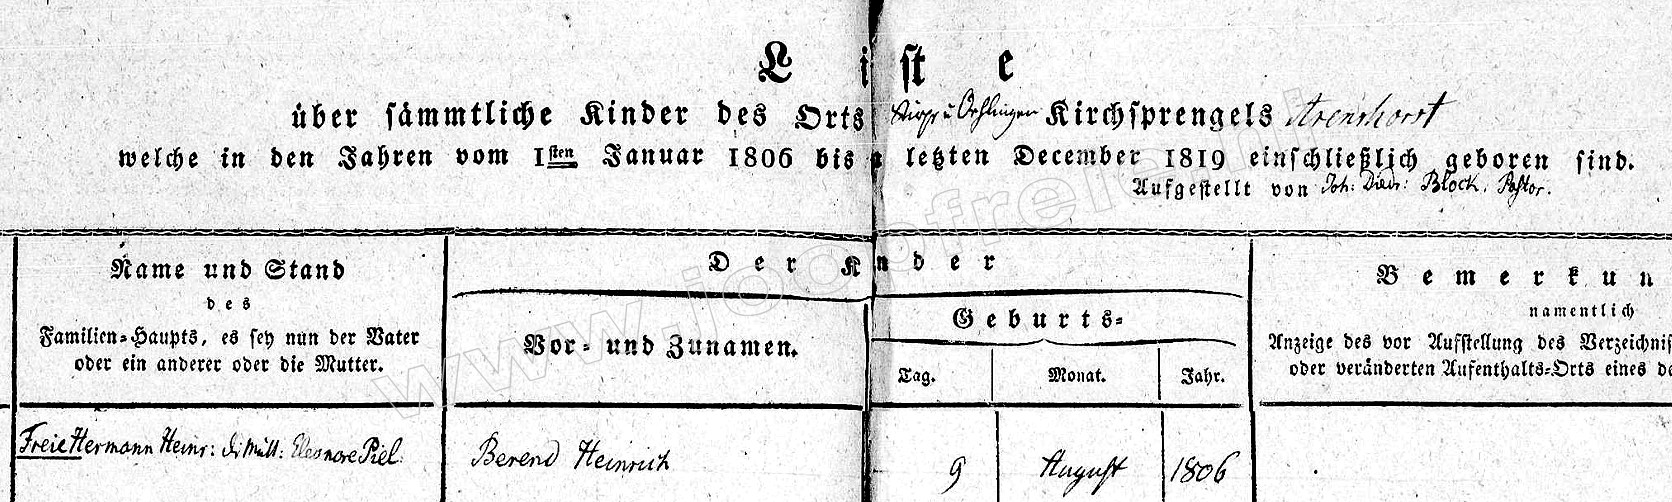 Liste
über sämmtliche Kinder des Orts Oehlingen Kirchsprengels Arenshorst
welche in den Jahren vom 1sten Januar 1806 bis letzten December 1819 einschließlich geboren sind.
Aufgestellt von Joh: Diedr: Block, Pastor.
Name und Stand
des
Familien-Haupts, es sey nun der Vater
oder ein anderer oder die Mutter.
Der Kinder
Vor- und Zunamen.
Geburts-
Tag. Monat. Jahr.
Bemerkun
namentlich
Anzeige des vor Aufstellung des Verzeichnis
oder veränderten Aufenthalts-Orts eines de
Freie Hermann Heinr: di Mutt: Eleonore Piel. Berend Heinrich 9 August 1806
www.joopfreie.